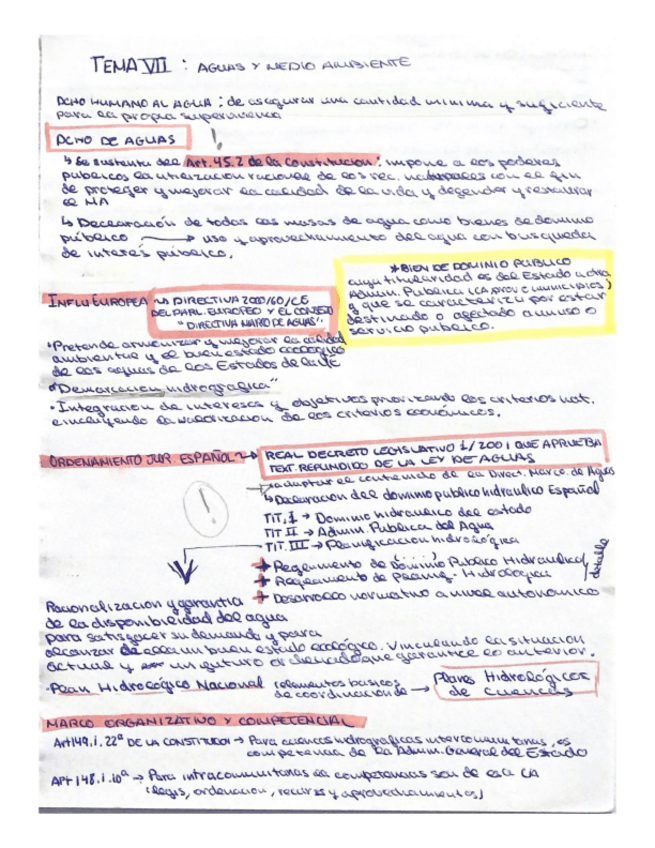 TEMA VII : AGUAS Y MEDIO AMBIENTE
DCHO HUMANO AL AGUA : de asegurar una cantidad minima y suficiente
para la propia supervivencia
DCHO DE AGUAS !
↳ Se sustenta del Art. 45.2 de la Constitucion: impone a los poderes
publicos la utilizacion racional de los rec. naturales con el fin
de proteger y mejorar la calidad de la vida y defender y restaurar
el MA
↳ Declaración de todas las masas de agua como bienes de dominio
público → uso y aprovechamiento del agua con busqueda
de interés público.
*BIEN DE DOMINIO PUBLICO
cuya titularidad es del Estado u otra
Admin. Publica (CA, prov. o municipios)
y que se caracteriza por estar
destinado o afectado a un uso o
servicio publico.
INFLU EUROPEA ↳ DIRECTIVA 2000/60/CE
DEL PARL. EUROPEO Y EL CONSEJO
"DIRECTIVA MARCO DE AGUAS".
• Pretende armonizar y mejorar la calidad
ambiental y el buen estado ecologico
de las aguas de los Estados de la UE
• "Demarcacion hidrografica"
• Integracion de intereses y objetivos priorizando los criterios nat.
e incluyendo la valorizacion de los criterios económicos.
ORDENAMIENTO JUR ESPAÑOL → REAL DECRETO LEGISLATIVO 1/2001 QUE APRUEBA
TEXT. REFUNDIDO DE LA LEY DE AGUAS
→ adaptar el contenido de la Direct. Marco de Aguas
↳ Declaracion del dominio publico hidraulico Español
!
TIT. I → Dominio hidraulico del estado
TIT II → Admin. Publica del Agua
TIT. III → Planificacion hidrológica
+ Reglamento de Dominio Publico Hidraulico
+ Reglamento de Planif. Hidrologica
+ Desarrollo normativo a nivel autonómico
detalle
Racionalizacion y garantia
de la disponibilidad del agua
para satisfacer su demanda y para
alcanzar de ella un buen estado ecológico. Vinculando la situacion
actual y un futuro que garantice lo anterior.
• Plan Hidrológico Nacional (elementos basicos
de coordinacion de → Planes Hidrológicos
de cuencas
MARCO ORGANIZATIVO Y COMPETENCIAL
Art 149.1.22ª DE LA CONSTITUCION → Para cuencas hidrograficas intercomunitarias, es
competencia de la Admin. General del Estado
ART 148.1.10ª → Para intracomunitarias la competencias son de esa CA
(legis, ordenacion, recursos y aprovechamientos)